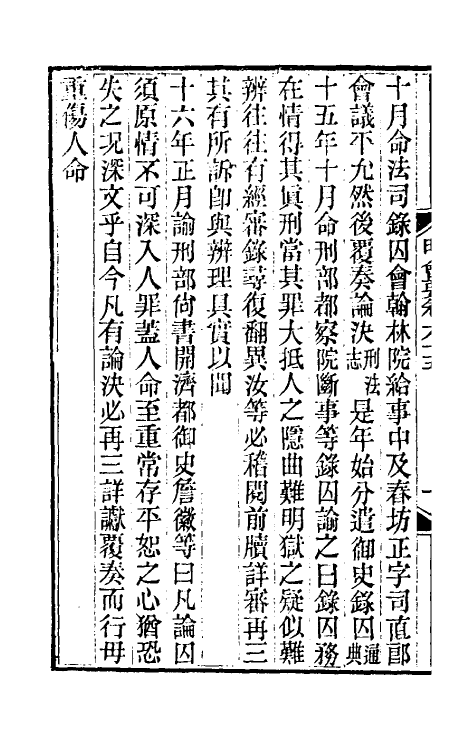 十月命法司錄囚會翰林院給事中及春坊正字司直郎
會議平允然後覆奏論決刑法志是年始分遣御史錄囚通典
十五年十月命刑部都察院斷事等錄囚諭之曰錄囚務
在情得其眞刑當其罪大抵人之隱曲難明獄之疑似難
辨往往有經審錄尋復翻異汝等必稽閱前牘詳審再三
其有所訴卽與辨理具實以聞
十六年正月諭刑部尙書開濟都御史詹徽等曰凡論囚
須原情不可深入人罪蓋人命至重常存平恕之心猶恐
失之况深文乎自今凡有論決必再三詳讞覆奏而行毋
重傷人命